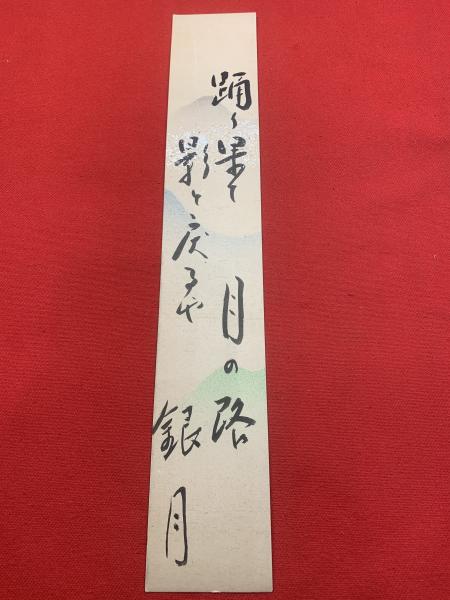 踊り果て
影と戻るや
月の路
銀月